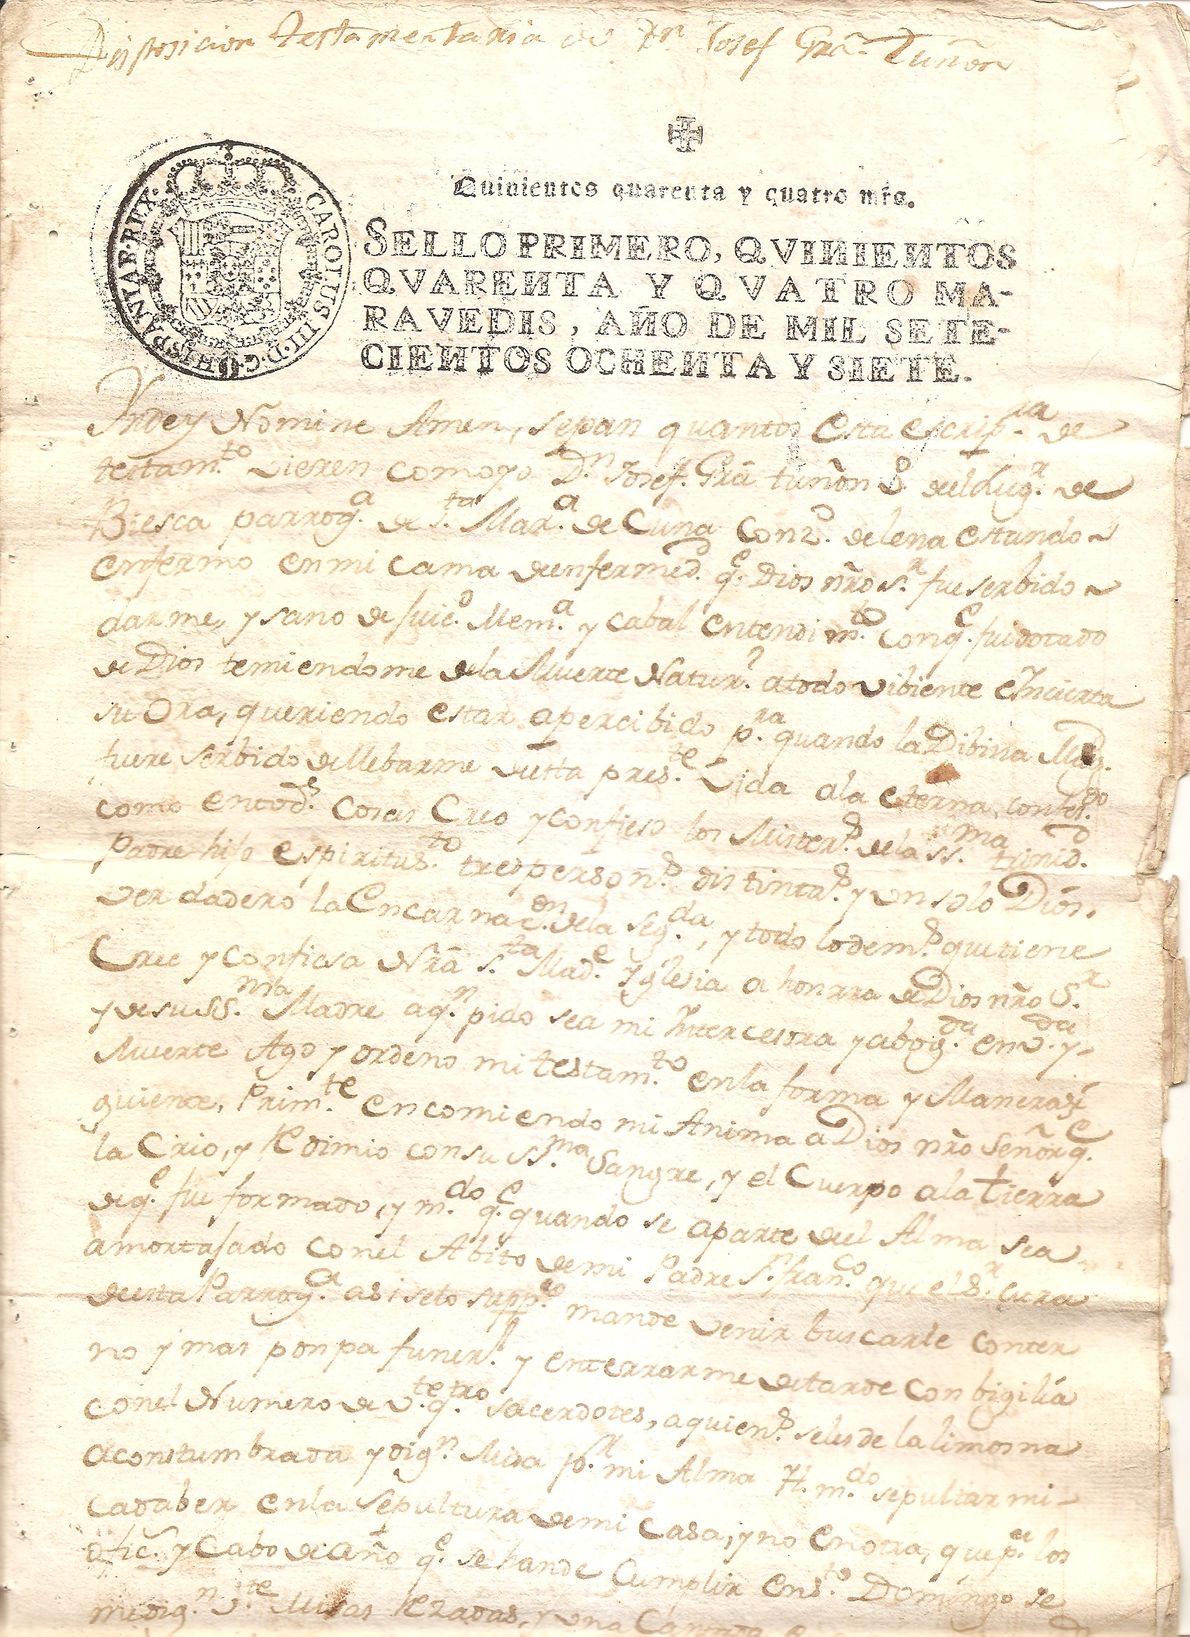 Disposicion testamentaria de Dn Josef Gra. Tuñon
Quinientos quarenta y quatro mrs.
CAROLUS III D. G. HISPANIAR REX.
SELLO PRIMERO, QVINIENTOS
QVARENTA Y QVATRO MA-
RAVEDIS, AÑO DE MIL SETE-
CIENTOS OCHENTA Y SIETE.
Yndey Nomine Amen, sepan quantos esta escrip.ra de
testam.to vieren como yo Dn Josef Gra. tuñon del Lug.r de
Biesca parroq.a de S.ta Mar.a de Cuna Conz.o de lena estando
enfermo en mi cama de enfermed.d q.e Dios nro S.r fue serbido
darme, y sano de juic.o Mem.a y cabal entendim.to con q.e fui dotado
de Dios temiendome de la Muerte Natur.l a todo vibiente e Incierta
su Ora, queriendo estar apercibido p.ra quando la Dibina Mag.d
fuere serbido de llebarme desta pres.te vida a la eterna,
como en tod.s cosas Creo y confieso los Mister.s de la SS.ma trinid.d
Padre hijo e espiritu S.to tres person.s distintas y un solo Dios
verdadero la Encarnac.on de la seg.da, y todo lo dem.s que tiene
Cree y confiesa Nra S.ta Mad.e Yglesia a honrra de Dios nro S.r
y de su SS.ma Madre a q.n pido sea mi Intercesora y abog.da en v.da y
Muerte Ago y ordeno mi testam.to en la forma y Manera si
guiente, Prim.te encomiendo mi Anima a Dios nro Señor q.e
la Crio, y Redimio con su SS.ma Sangre, y el Cuerpo a la tierra
de q.e fue formado, y m.do q.e quando se aparte del Alma sea
amortajado con el Abito de mi Padre S.n Fran.co que el S.r Cura
desta Parroq.a asi se lo supp.co mande venir buscarle con ter
no y mas ponpa funer.l y enterrarme de tarde con bigilia
con el Numero de v.te q.tro sacerdotes, a quien.s se les de la limosna
aconstumbrada y dig.n Misa p.r mi Alma Yt. m.do sepultar mi
cadaber en la sepultura de mi Casa, y no en otra, que p.r los
ofic.s y Cabo de año q.e se han de Cumplir en S.to Domingo se
me dig.n v.te Misas Rezadas, y una Cantada